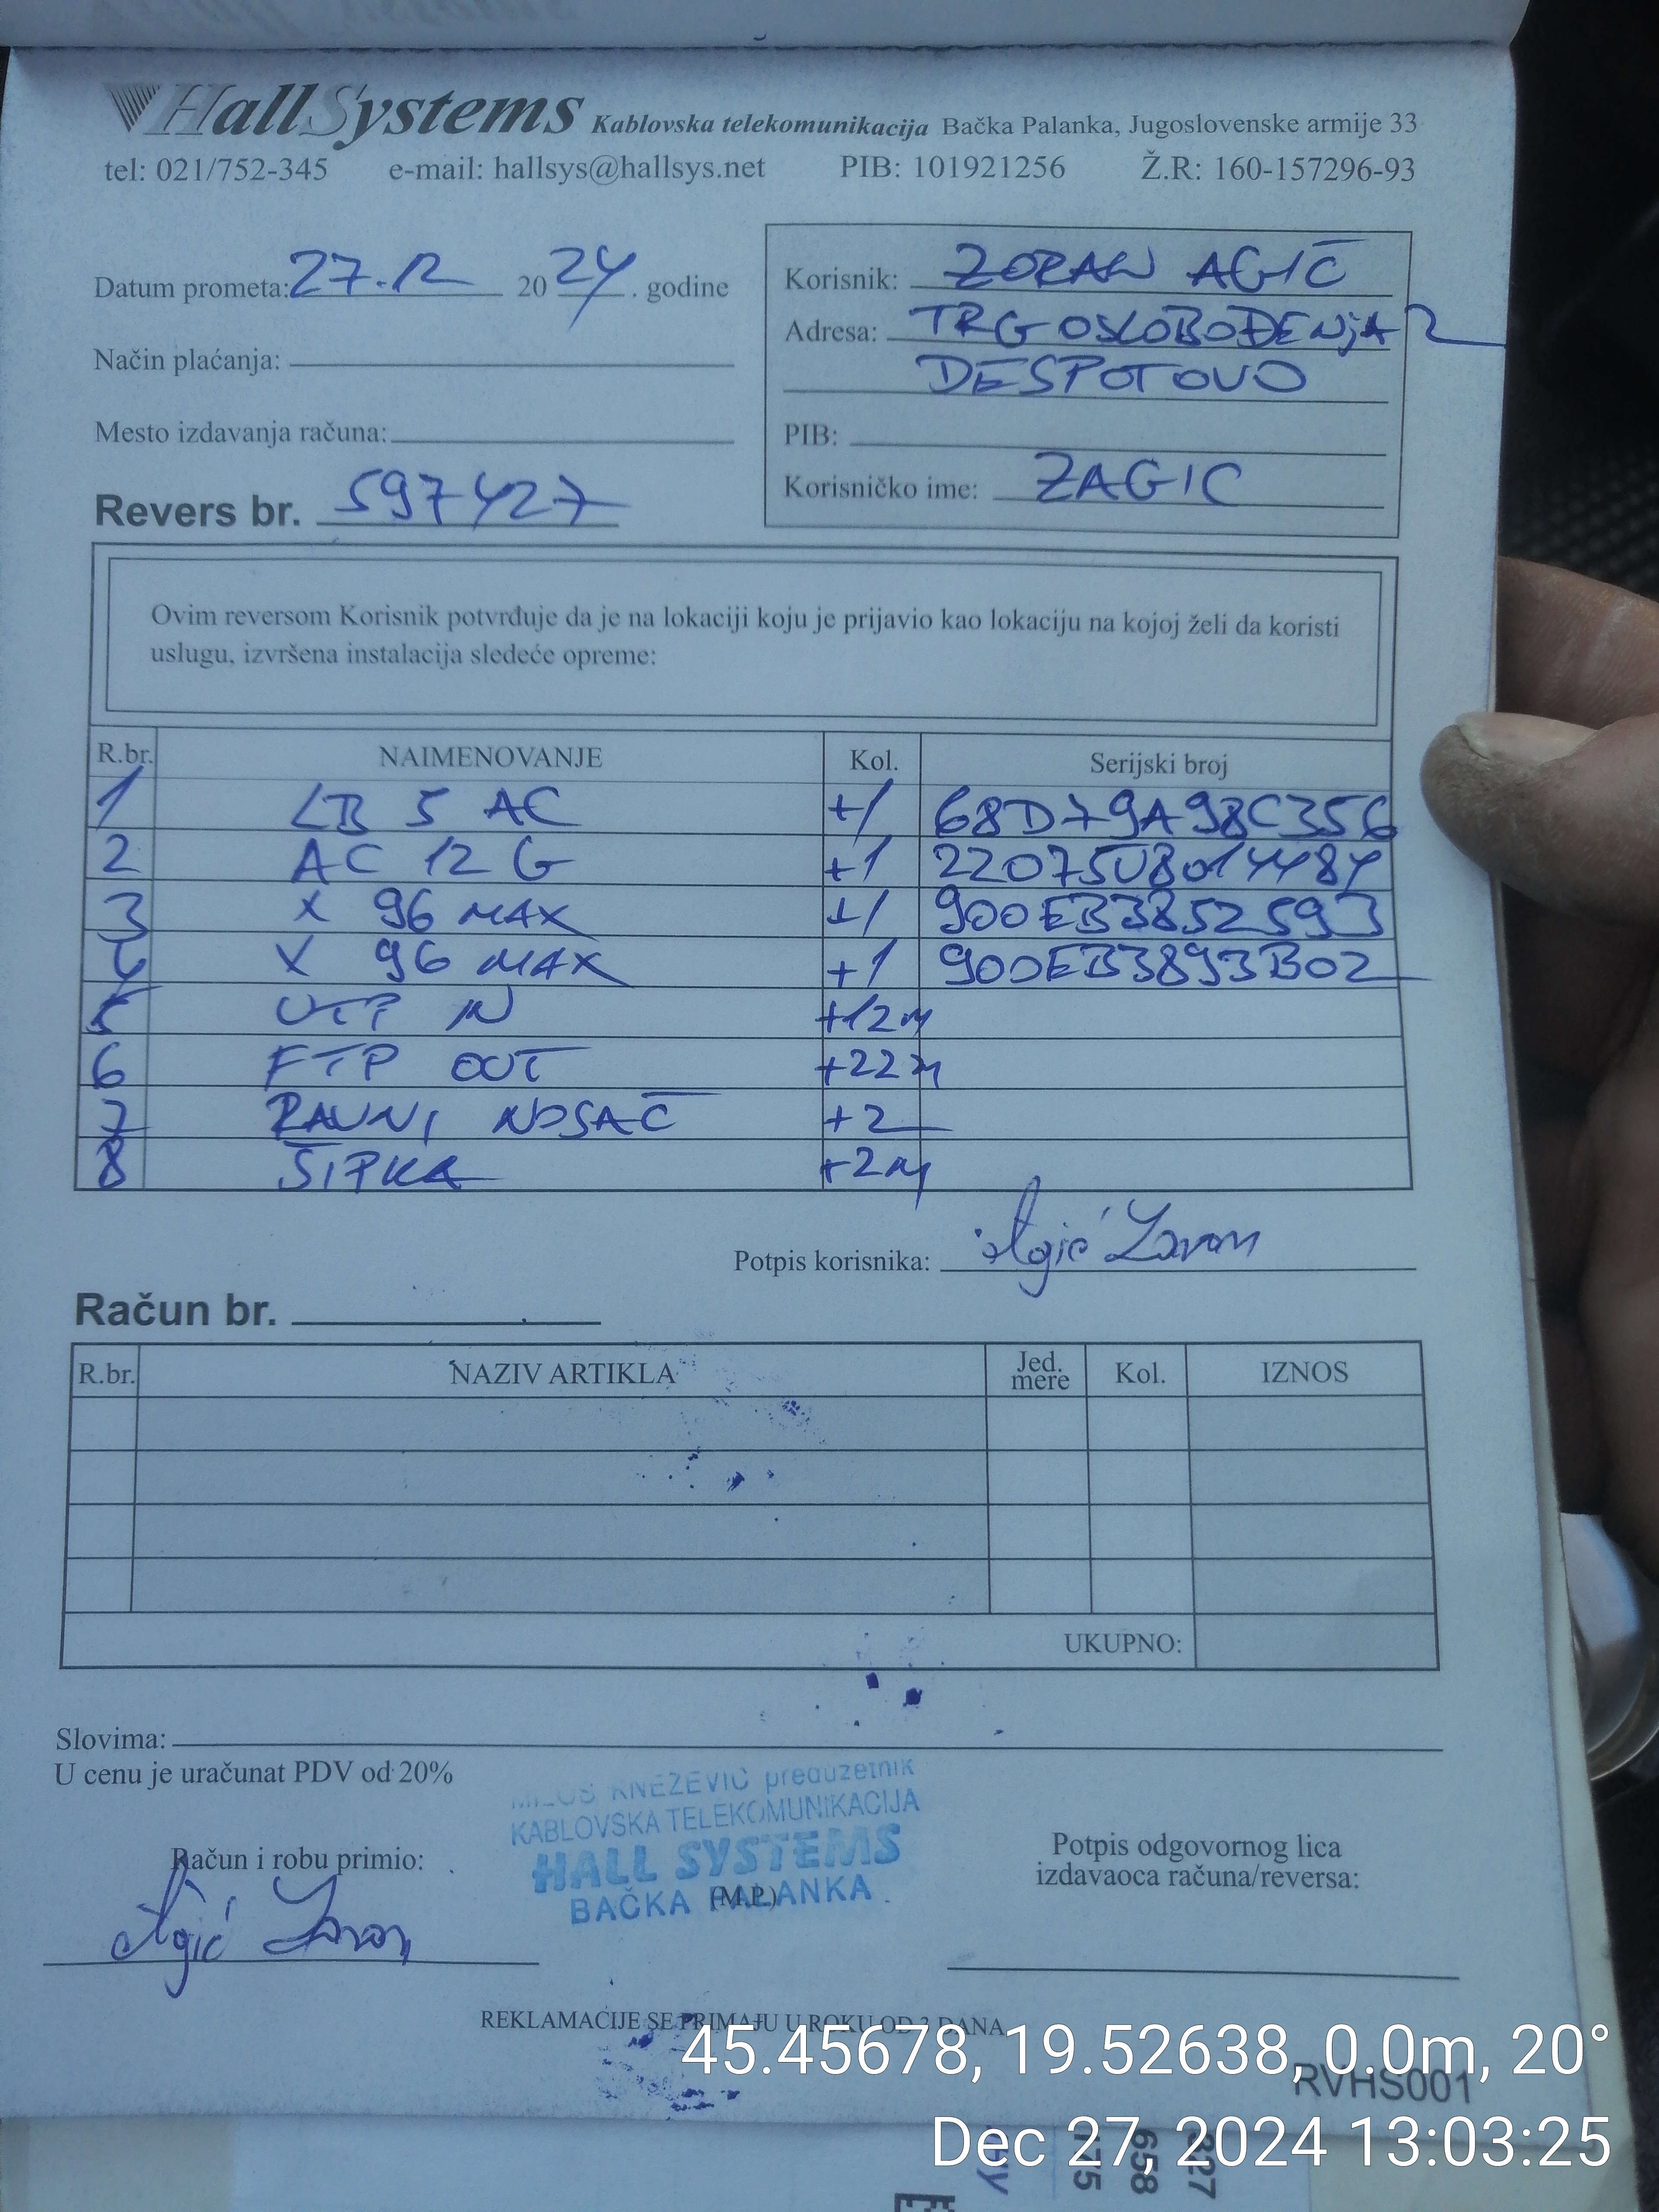 HallSystems Kablovska telekomunikacija Bačka Palanka, Jugoslovenske armije 33
tel: 021/752-345 e-mail: hallsys@hallsys.net PIB: 101921256 Ž.R: 160-157296-93
Datum prometa: 27.12 2024. godine
Način plaćanja:
Mesto izdavanja računa:
Revers br. 597427
Korisnik: ZORAN AGIĆ
Adresa: TRG OSLOBOĐENjA 2
DESPOTOVO
PIB:
Korisničko ime: ZAGIC
Ovim reversom Korisnik potvrđuje da je na lokaciji koju je prijavio kao lokaciju na kojoj želi da koristi
uslugu, izvršena instalacija sledeće opreme:
R.br. NAIMENOVANJE Kol. Serijski broj
1 LB 5 AC +1 68D79A98C356
2 AC 12 G +1 22075U8014484
3 X 96 MAX +1 900EB3852593
4 X 96 MAX +1 900EB3893B02
5 UTP IN +12m
6 FTP OUT +22m
7 RAVNI NOSAČ +2
8 ŠIPKA +2m
Potpis korisnika: Agić Zoran
Račun br.
R.br. NAZIV ARTIKLA Jed. mere Kol. IZNOS
UKUPNO:
Slovima:
U cenu je uračunat PDV od 20%
MILOŠ KNEŽEVIĆ preduzetnik
KABLOVSKA TELEKOMUNIKACIJA
HALL SYSTEMS
BAČKA PALANKA
(M.P.)
Račun i robu primio:
Agić Zoran
Potpis odgovornog lica
izdavaoca računa/reversa:
REKLAMACIJE SE PRIMAJU U ROKU OD 3 DANA
45.45678, 19.52638, 0.0m, 20°
RVHS001
Dec 27, 2024 13:03:25